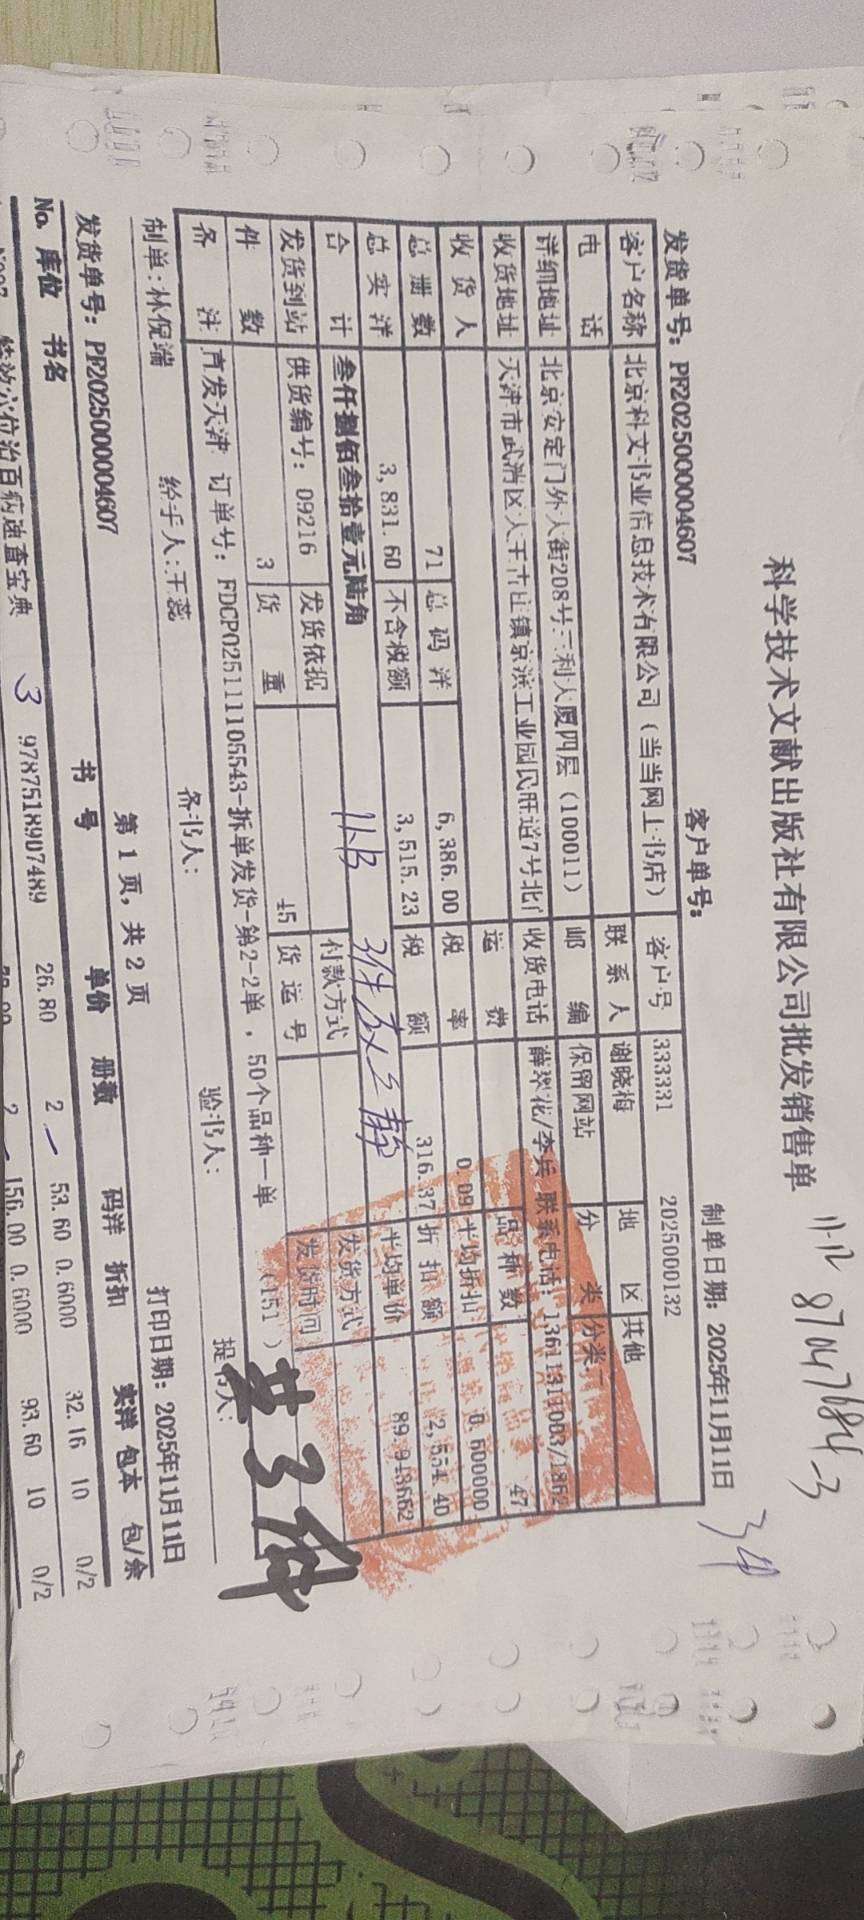 科学技术文献出版社有限公司批发销售单
11-12 87047684-3
发货单号: PF2025000004607 客户单号: 制单日期: 2025年11月11日
客户名称 北京科文书业信息技术有限公司(当当网上书店) 客户号 333331 2025000132
电话 联系人 谢晓梅 地区 其他
详细地址 北京安定门外大街208号三利大厦四层(100011) 邮编 保留网站 分类 分类二
收货地址 天津市武清区大王古庄镇京滨工业园民旺道7号北门 收货电话 薛翠花/李兵 联系电话: 13611311083/1862
收货人 运费 品种数 47
总册数 71 总码洋 6,386.00 税率 0.09 平均折扣 0.600000
总实洋 3,831.60 不含税额 3,515.23 税额 316.37 折扣额 2,554.40
合计 叁仟捌佰叁拾壹元陆角 平均单价 89.943662
发货到站 供货编号: 09216 发货依据 付款方式 发货方式
件数 3 货重 45 货运号 发货时间
备注 直发天津 订单号: FDCP025111105543-拆单发货-第2-2单, 50个品种一单 (151)
制单: 林倪端 经手人: 王蕊 备书人: 验书人: 提书人:
共3件
第 1 页, 共 2 页 打印日期: 2025年11月11日
发货单号: PF2025000004607
No. 库位 书名 书号 单价 册数 码洋 折扣 实洋 包本 包/余
3 9787518907489 26.80 2 53.60 0.6000 32.16 10 0/2
特效穴位治百病速查宝典 2 156.00 0.6000 93.60 10 0/2